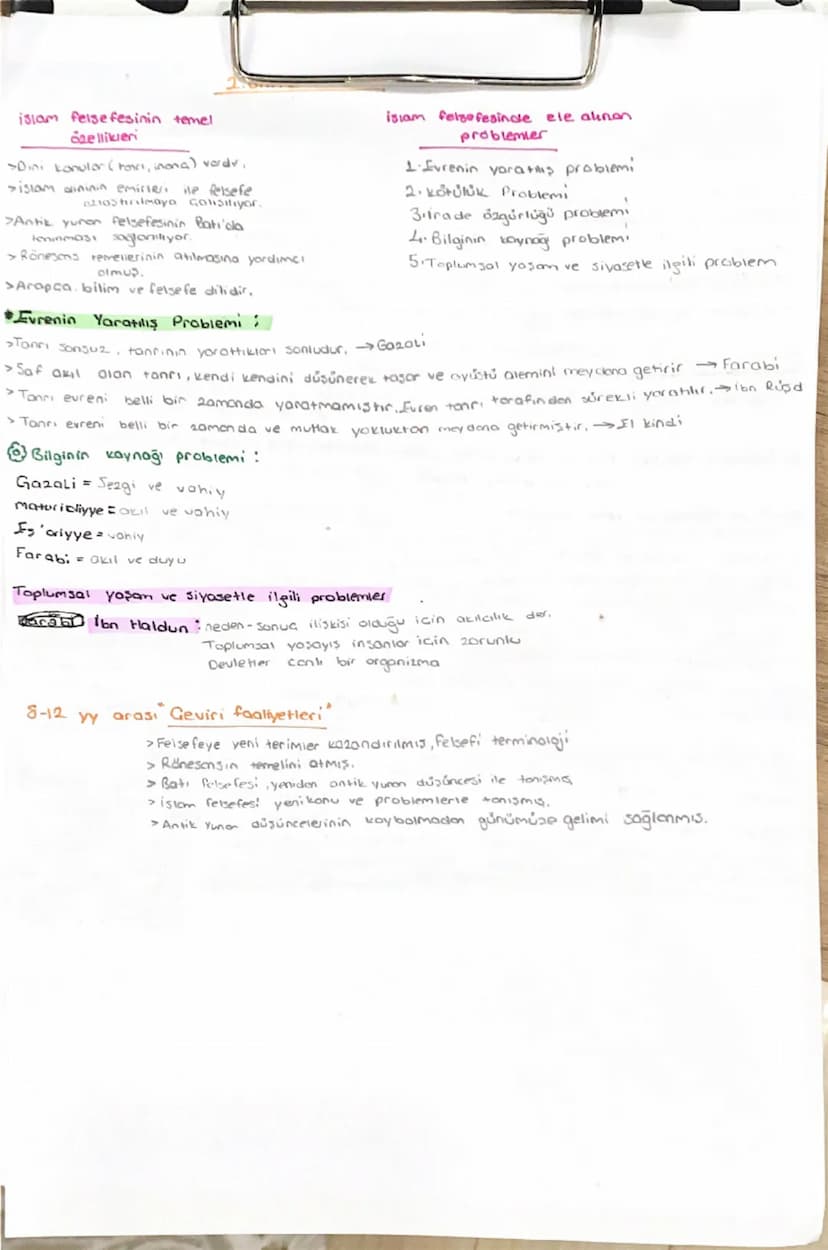 islam felsefesinin temel
özellikleri
>Dini konular (tanrı, inanç) vardır.
>islam dininin emirleri ile felsefe
uzlaştırılmaya çalışılıyor.
>Antik yunan felsefesinin Batı'da
tanınması sağlanılıyor.
>Rönesans temellerinin atılmasına yardımcı
olmuş.
>Arapça bilim ve felsefe dilidir.
islam felsefesinde ele alınan
problemler
1. Evrenin yaratılış problemi
2. kötülük Problemi
3. irade özgürlüğü problemi
4. Bilginin kaynağı problemi
5. Toplumsal yaşam ve siyasetle ilgili problem
*Evrenin Yaratılış Problemi :
>Tanrı sonsuz, tanrının yarattıkları sonludur. → Gazali
>Saf akıl olan tanrı, kendi kendini düşünerek taşar ve ayüstü alemini meydana getirir → Farabi
>Tanrı evreni belli bir zamanda yaratmamıştır. Evren tanrı tarafından sürekli yaratılır. → ibn Rüşd
>Tanrı evreni belli bir zamanda ve mutlak yokluktan meydana getirmiştir. → El kindi
Bilginin kaynağı problemi :
Gazali = Sezgi ve vahiy
maturidiyye = akıl ve vahiy
Eş'ariyye = vahiy
Farabi = akıl ve duyu
Toplumsal yaşam ve siyasetle ilgili problemler
ibn Haldun : neden-sonuç ilişkisi olduğu için akılcılık der.
Toplumsal yaşayış insanlar için zorunlu
Devletler canlı bir organizma
8-12 yy arası "Çeviri faaliyetleri"
>Felsefeye yeni terimler kazandırılmış, felsefi terminoloji
>Rönesansın temelini atmış.
>Batı felsefesi, yeniden antik yunan düşüncesi ile tanışmış
>islam felsefesi yeni konu ve problemlerle tanışmış.
>Antik Yunan düşüncelerinin kaybolmadan günümüze gelimi sağlanmış.